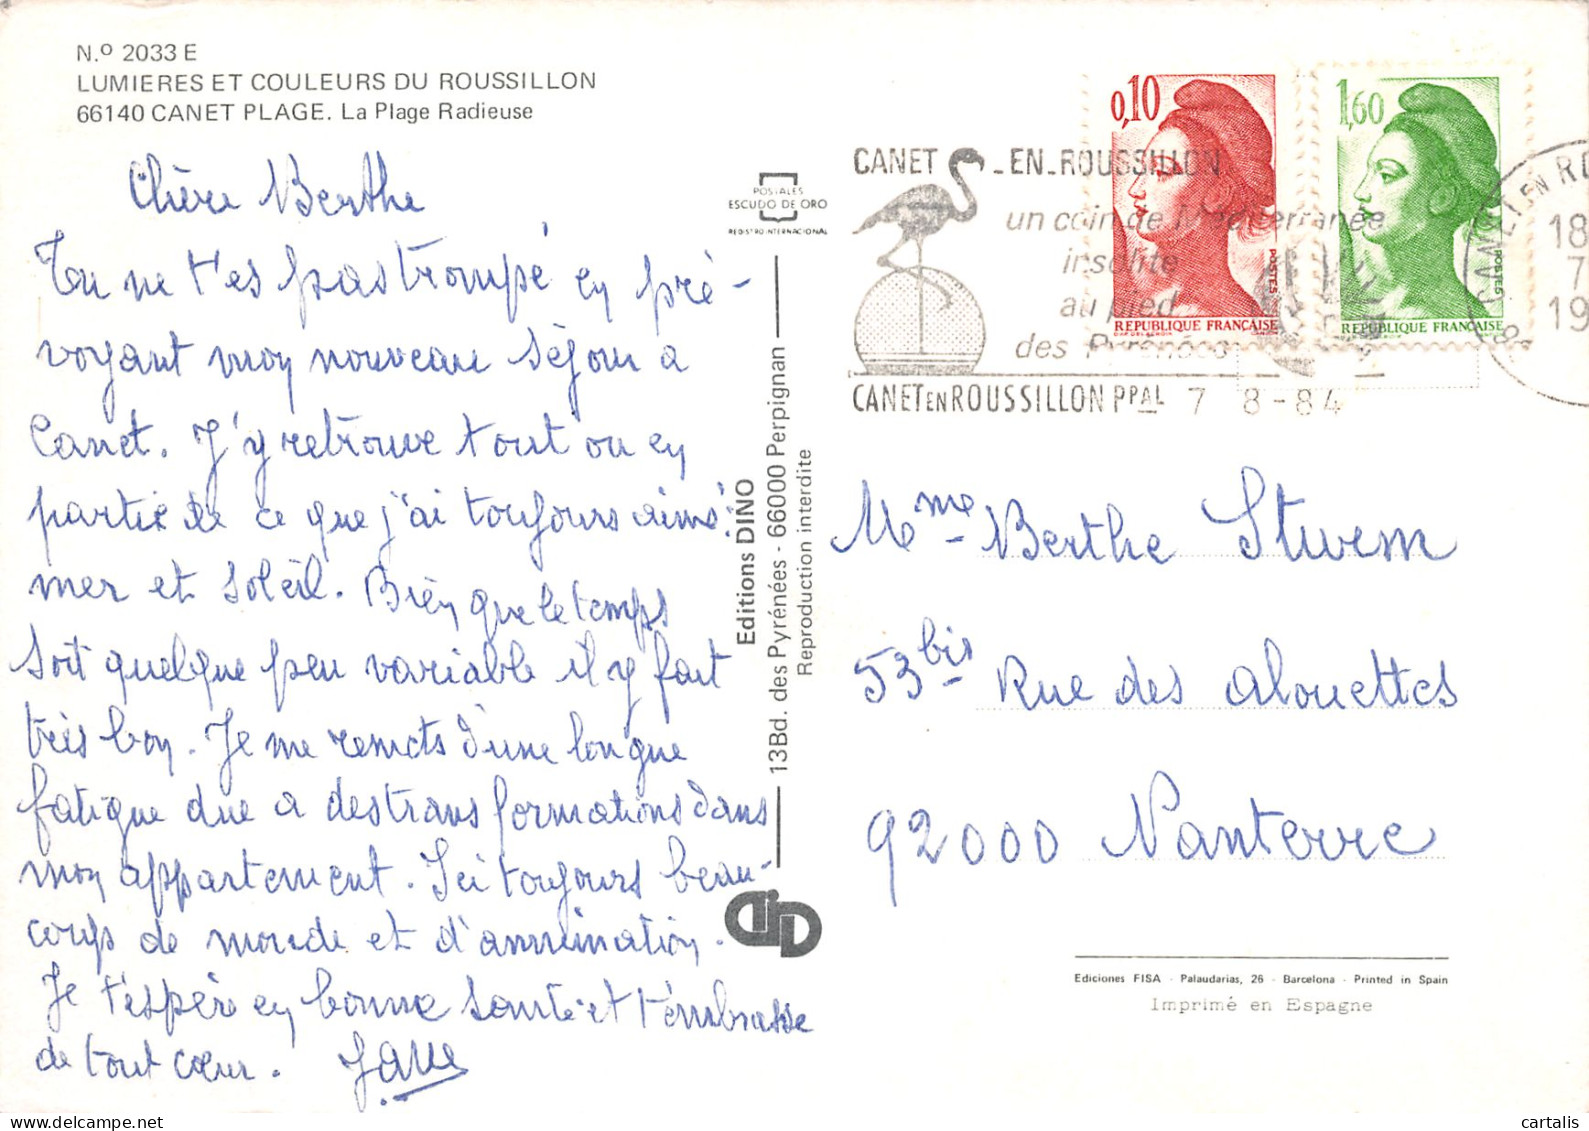 N.º 2033 E
LUMIERES ET COULEURS DU ROUSSILLON
66140 CANET PLAGE. La Plage Radieuse
Chère Berthe
Tu ne t'es pas trompé en pré-
voyant mon nouveau séjour a
Canet. J'y retrouve tout ou en
partie de ce que j'ai toujours aimé:
mer et soleil. Bien que le temps
soit quelque peu variable il y fait
très bon. Je me remets d'une longue
fatigue due a des transformations dans
mon appartement. Ici toujours beau-
coup de monde et d'animation.
Je t'espère en bonne santé et t'embrasse
de tout cœur.
POSTALES
ESCUDO DE ORO
REGISTRO INTERNACIONAL
Editions DINO
13Bd. des Pyrénées - 66000 Perpignan
Reproduction interdite
0,10
REPUBLIQUE FRANÇAISE
POSTES
1,60
REPUBLIQUE FRANÇAISE
POSTES
CANET-EN-ROUSSILLON
un coin de Méditerranée
insolite
au pied
des Pyrénées
CANET EN ROUSSILLON PPAL 7 8-84
CANET EN RO
18
7
19
Mme Berthe Stuvem
53bis Rue des alouettes
92000 Nanterre
Ediciones FISA - Palaudarias, 26 - Barcelona - Printed in Spain
Imprimé en Espagne
cartalis